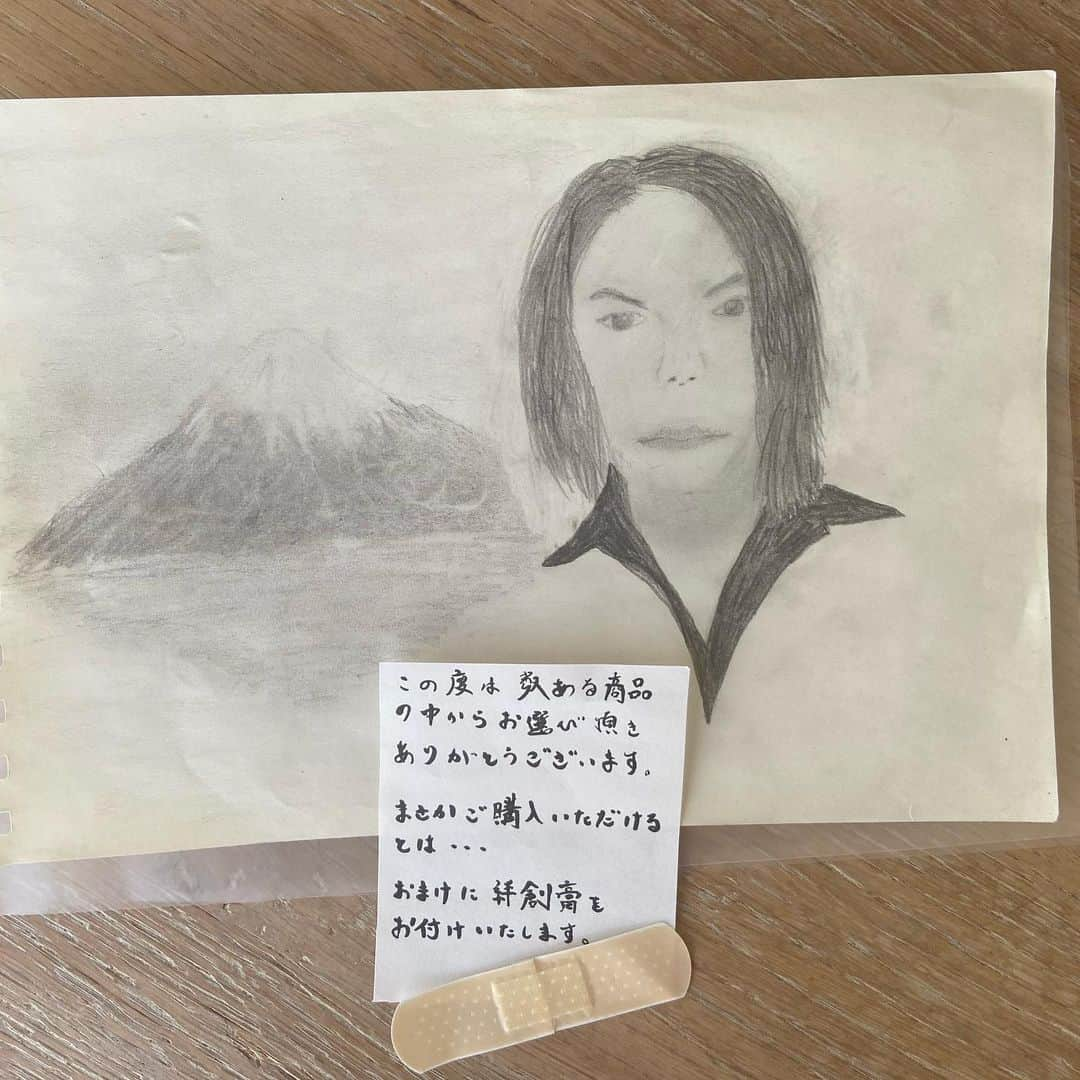 この度は 数ある商品
の中からお選び頂き
ありがとうございます。
まさかご購入いただける
とは・・・
おまけに 絆創膏を
お付けいたします。